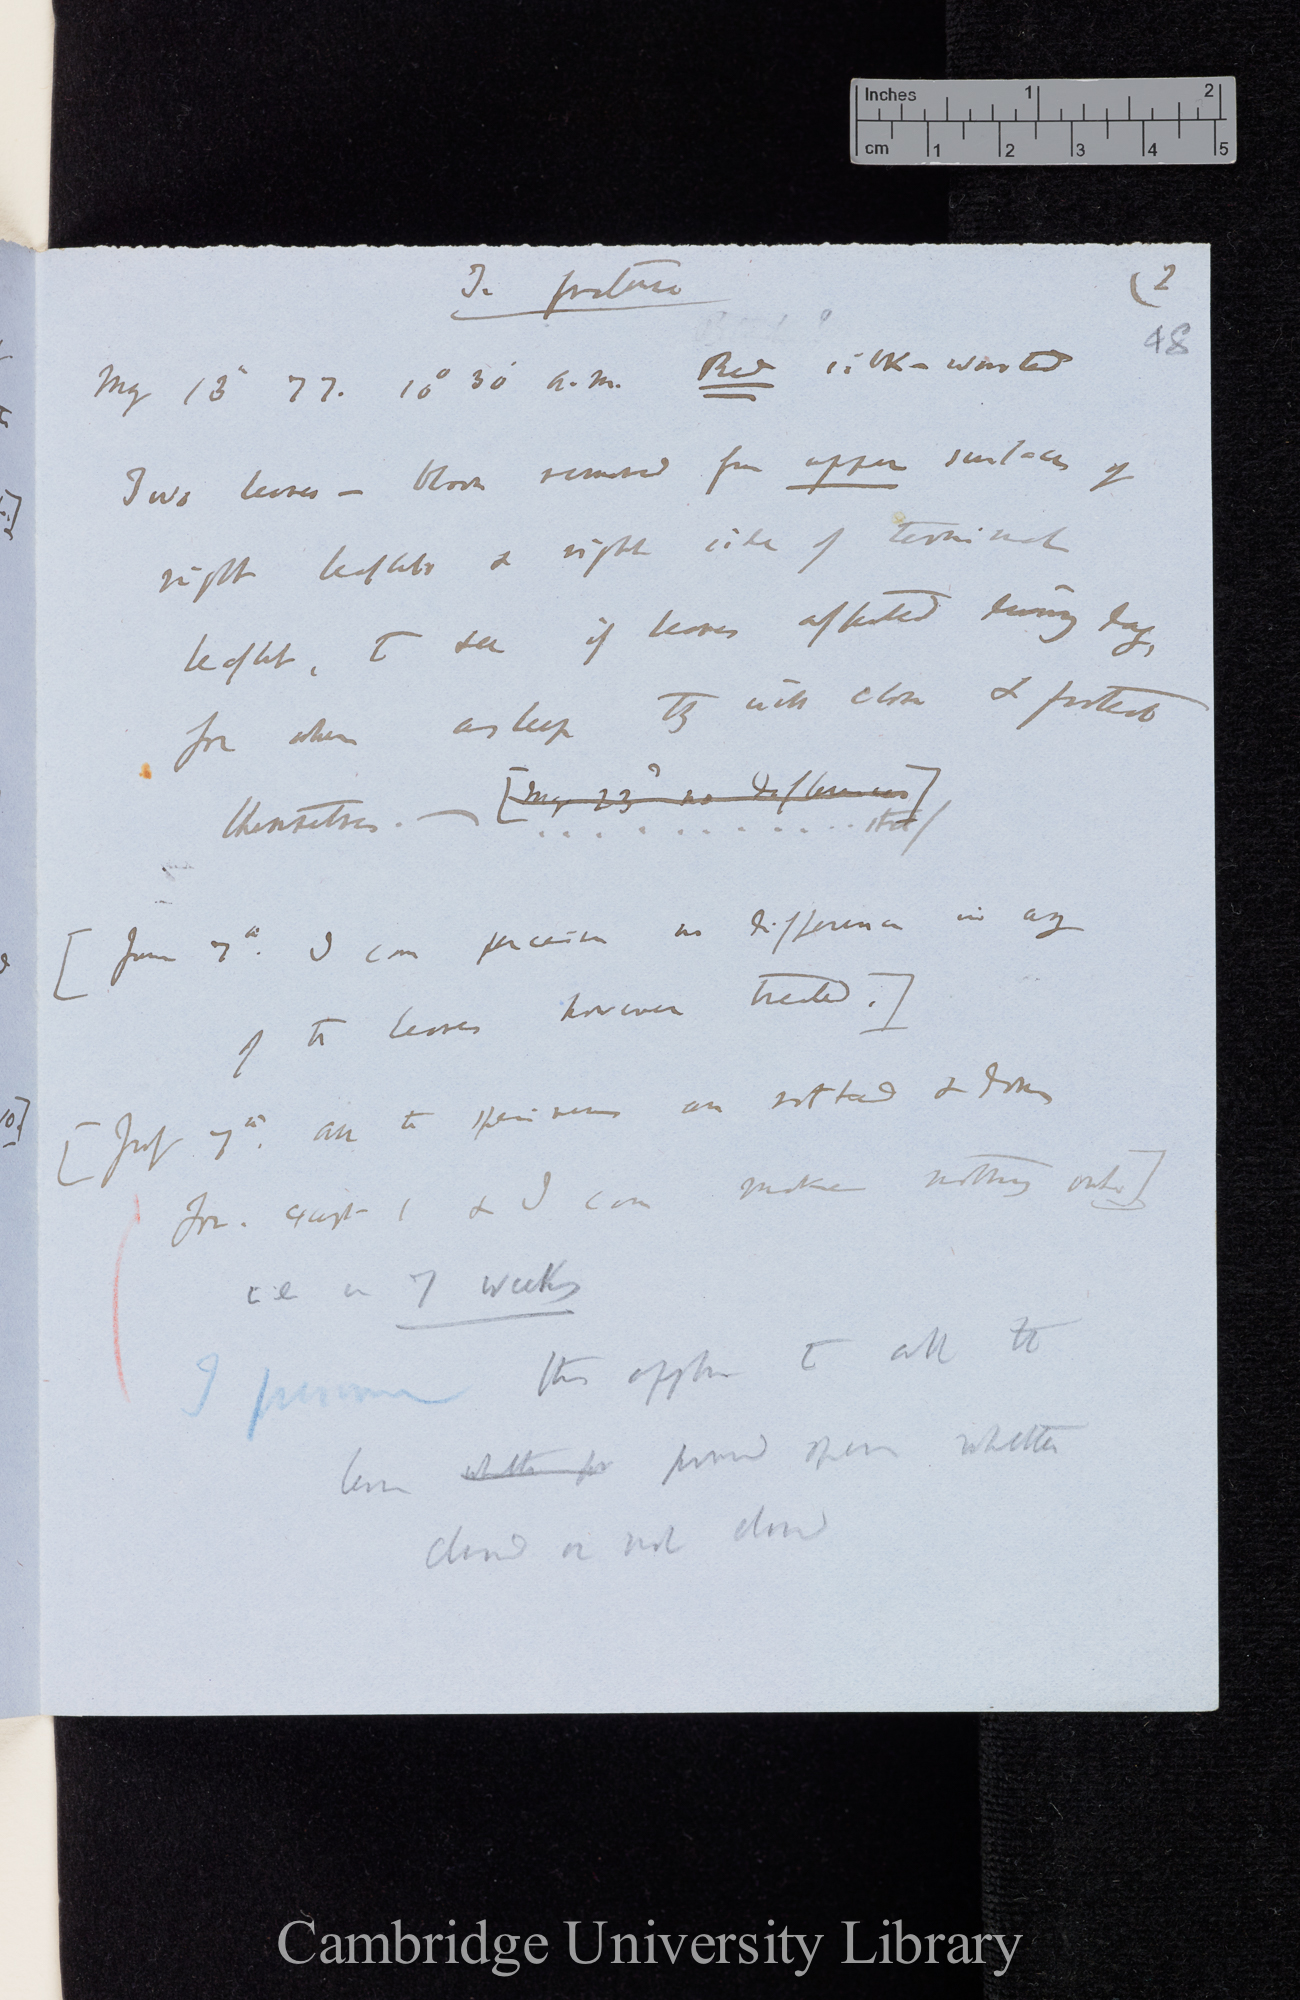 Inches 1 2
cm 1 2 3 4 5
(2
48
May 13th 77. 10° 30' a.m. Red silk-worsted
Two leaves — bloom removed from upper surfaces of
right leaflets & right side of terminal
leaflet, to see if leaves affected during day,
for when asleep they will close & protect
themselves. — [May 23d no differences]
Stet/
[June 7th. I can perceive no difference in any
of the leaves however treated.]
[July 7th. all the specimens are rotted & done
for. except 1 & I can make nothing out.]
i.e. in 7 weeks
I presume this applies to all the
leaves whether pinned open whether
closed or not closed
Cambridge University Library